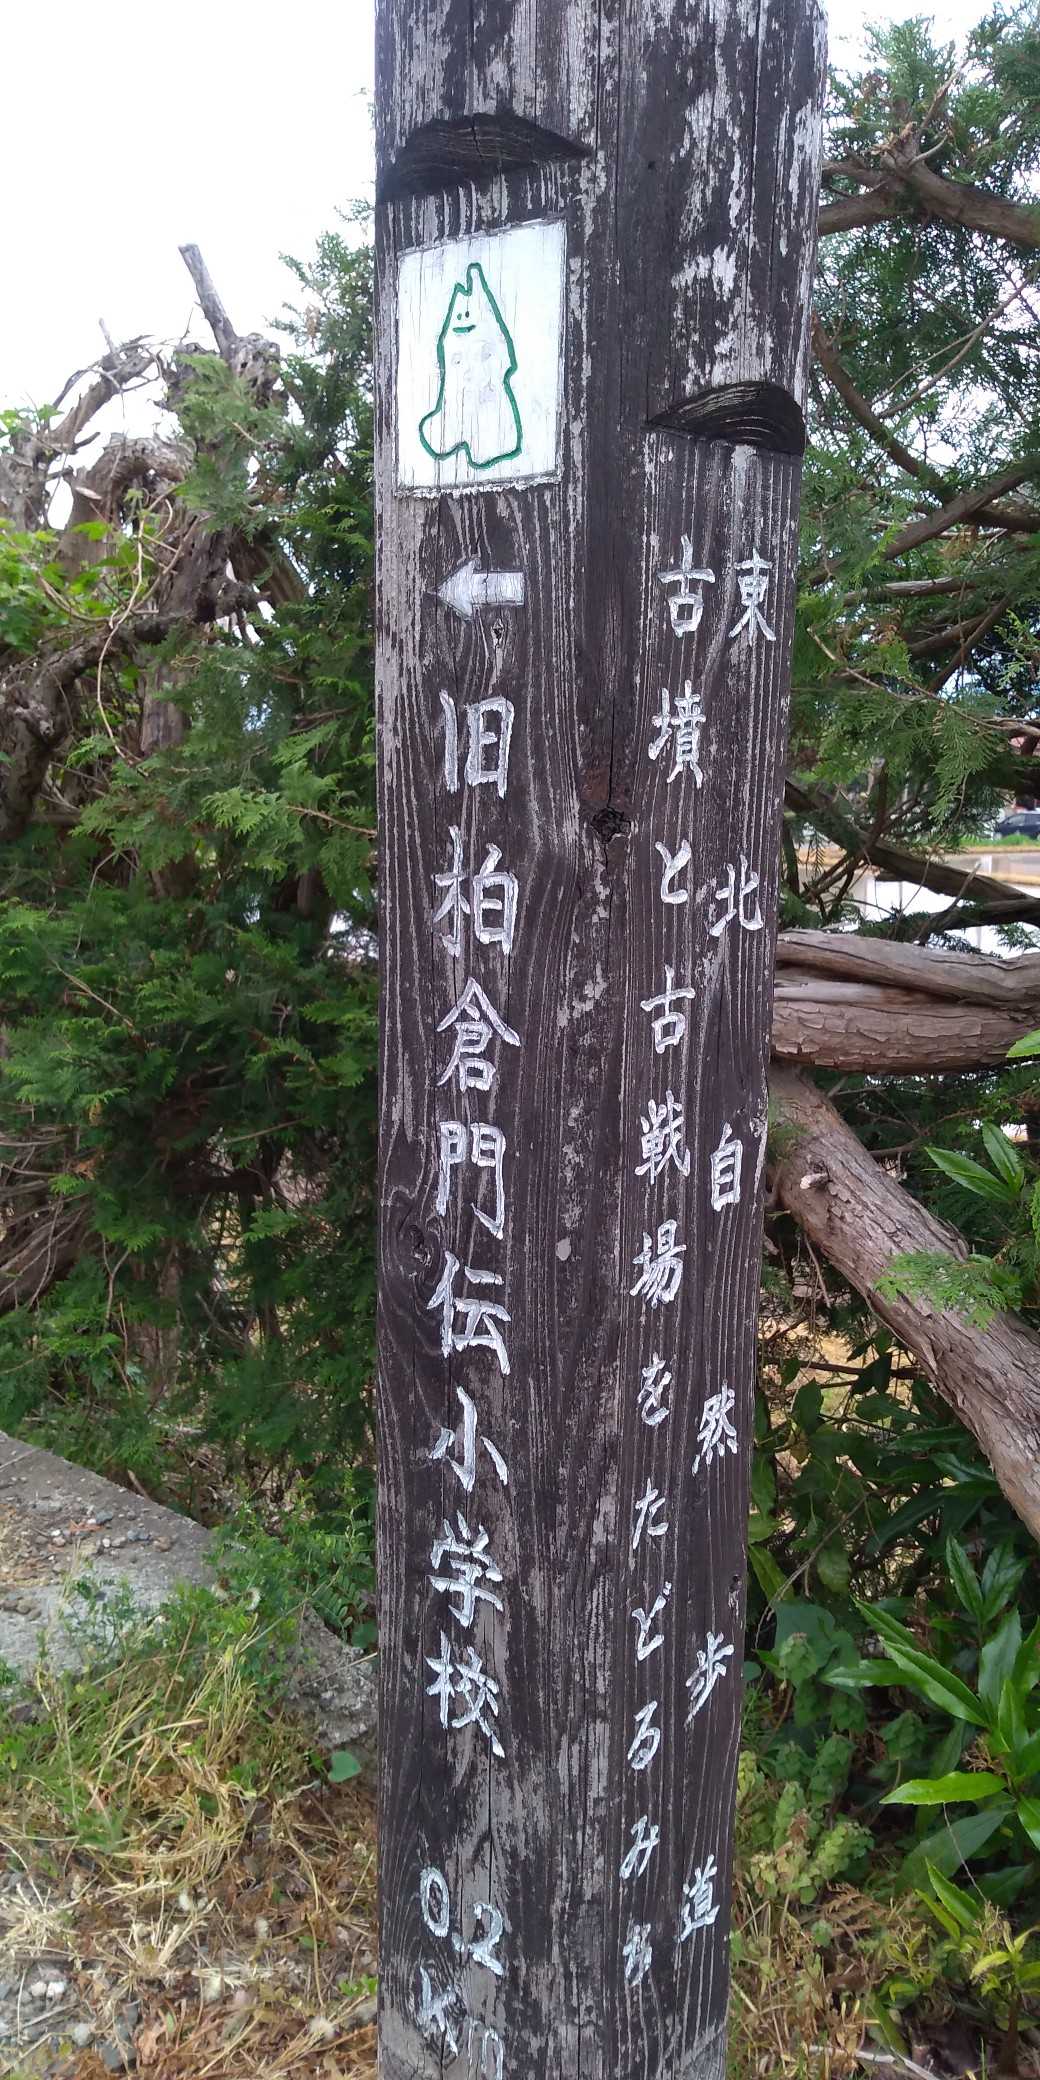 東北自然歩道
古墳と古戦場をたどるみち
旧柏倉門伝小学校 0.2km